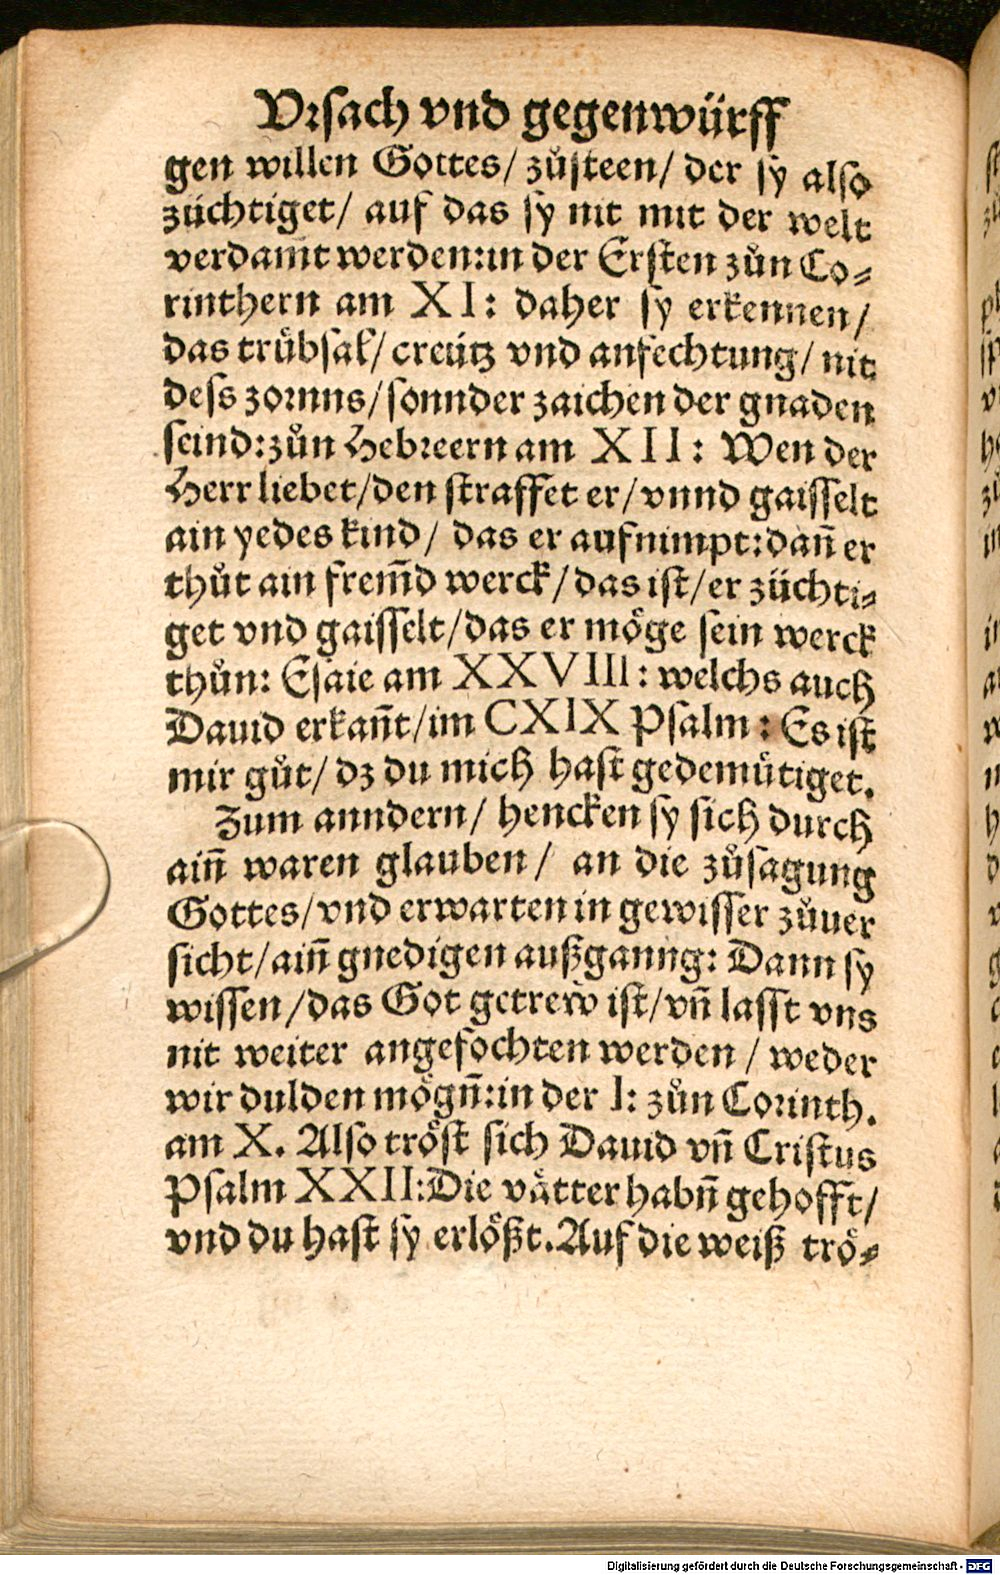 Vrsach vnd gegenwürff
gen willen Gottes/ zůsteen/ der sy also
züchtiget/ auf das sy nit mit der welt
verdam̃t werden:in der Ersten zůn Co⸗
rinthern am XI: daher sy erkennen/
das trůbsal/ creütz vnd anfechtung/ nit
dess zornns/sonnder zaichen der gnaden
seind:zůn Hebreern am XII: Wen der
Herr liebet/den straffet er/vnnd gaisselt
ain yedes kind/ das er aufnimpt:dañ er
thůt ain frem̃d werck/das ist/er züchti⸗
get vnd gaisselt/das er möge sein werck
thůn: Esaie am XXVIII: welchs auch
Dauid erkañt/im CXIX Psalm: Es ist
mir gůt/ dz du mich hast gedemůtiget.
Zum anndern/ hencken sy sich durch
aiñ waren glauben/ an die zůsagung
Gottes/vnd erwarten in gewisser zůuer
sicht/aiñ gnedigen außganng: Dann sy
wissen/das Got getrew ist/vñ lasst vns
nit weiter angefochten werden/ weder
wir dulden mögñ:in der I: zůn Corinth.
am X. Also tröst sich Dauid vñ Cristus
Psalm XXII:Die våtter habñ gehofft/
vnd du hast sy erlößt.Auf die weiß trö⸗
Digitalisierung gefördert durch die Deutsche Forschungsgemeinschaft - DFG